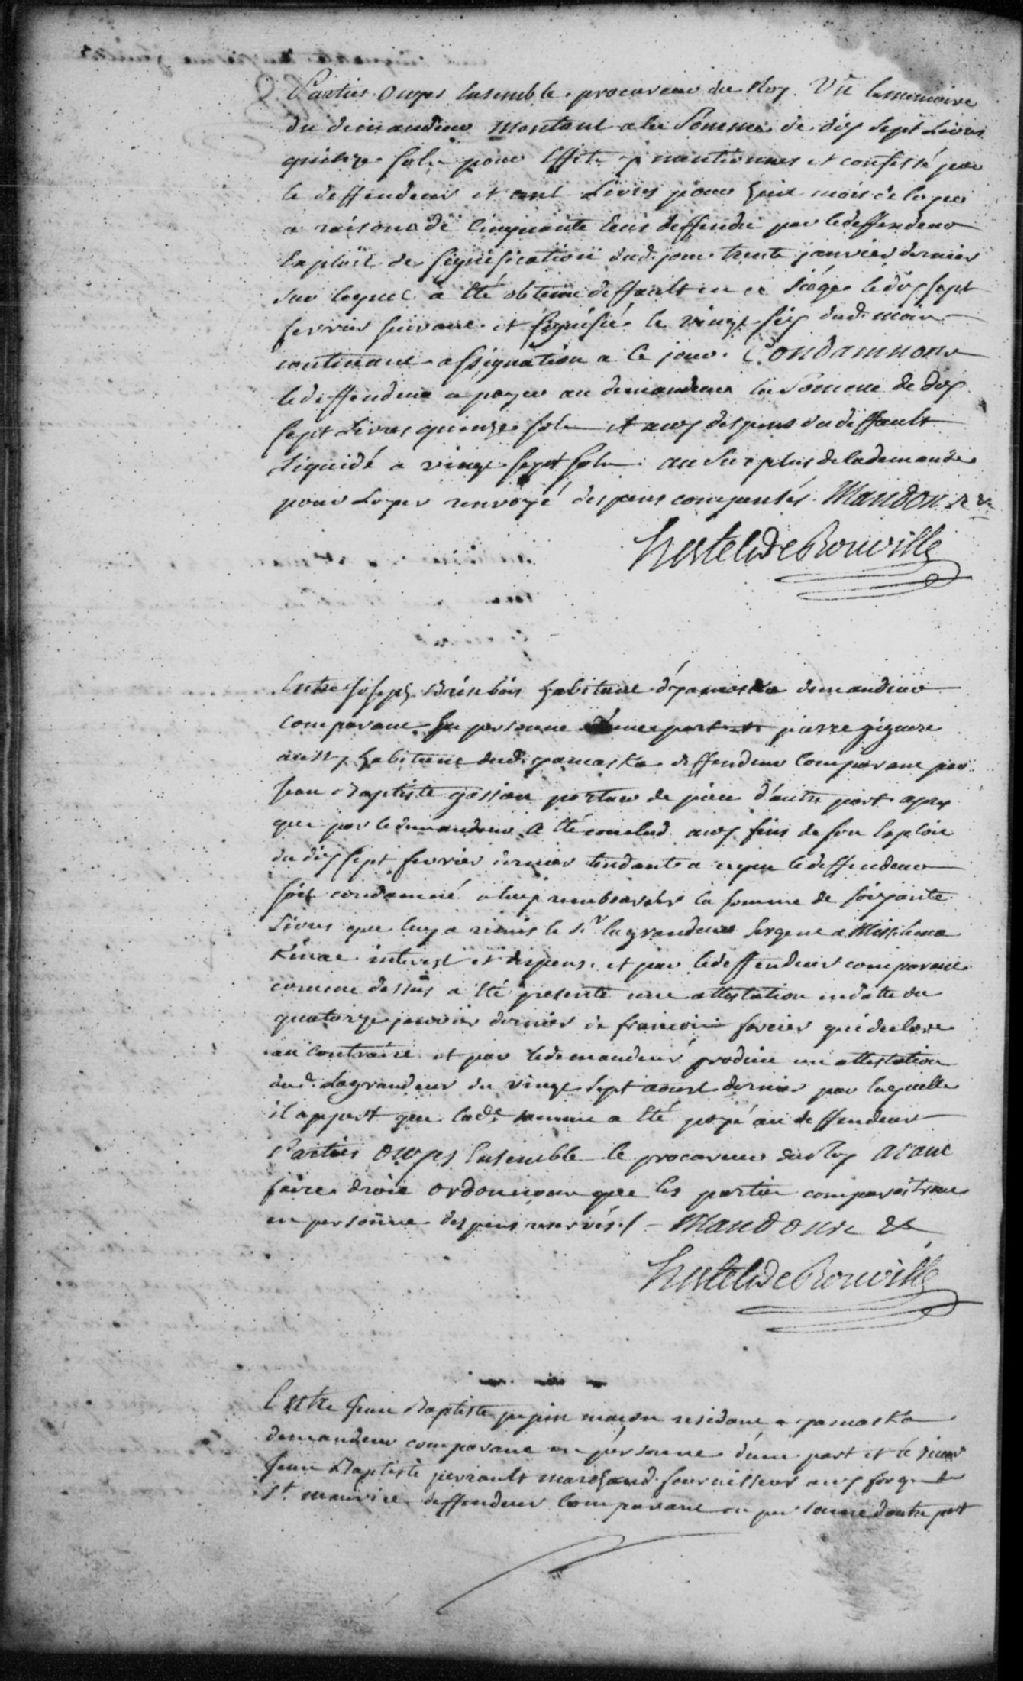 Parties ouyes Ensemble procureur du Roy. Vû le memoire
du demandeur montant a la Somme de dix sept Livres
quinze sols pour Effets y mentionnes et confessé par
le deffendeur et cent Livres pour huit mois de loyer
a raison de Cinquante Ecus deffendu par le deffendeur
Exploit de signification dud. jour trente janvier dernier
sur lequel a été obtenu deffault en ce Siége le dix sept
fevrier suivant et signifié le vingt six dud. mois
contenant assignation a ce jour. Condamnons
le deffendeur a payer au demandeur la Somme de dix
sept Livres quinze sols et aux despens du deffault
Liquidé a vingt sept sols. au Surplus de la demande
pour Loyer renvoyé despens compensés. Mandons &
Hertel de Rouville
Entre Joseph habitant d'yamaska demandeur
comparant En personne d'une part et pierre giguere
aussy habitant dud. yamaska deffendeur Comparant par
Jean Baptiste porteur de piece d'autre part apres
que par le demandeur a été conclud aux fins de son Exploit
du dix sept fevrier dernier tendante a ce que le deffendeur
soit condamné a luy rembourser la somme de soixante
Livres que luy a remis le Sr. lagrandeur sergent a Missilima
Kinac interest et despens, et par le deffendeur comparant
comme dessus a été presenté une attestation en datte du
quatorze janvier dernier de francois qui declare
au contraire. et par le demandeur produit un attestation
dud. Lagrandeur du vingt sept aoust dernier par laquelle
il appert que lade. somme a été payé au deffendeur
Parties ouyes Ensemble le procureur du Roy avant
faire droit ordonnons que les parties comparaitront
en personne despens reservés /. Mandons &
Hertel de Rouville
Entre Jean Baptiste pepin maçon residant a yamaska
demandeur comparant en personne d'une part et le sieur
Jean Baptiste perrault marchand fournisseur aux forges
St. maurice deffendeur Comparant en personne d'autre part